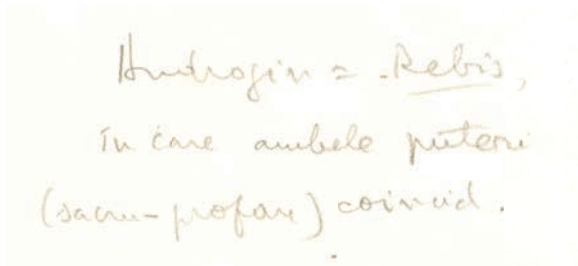 Androgin = Rebis,
în care ambele puteri
(sacru-profan) coincid.